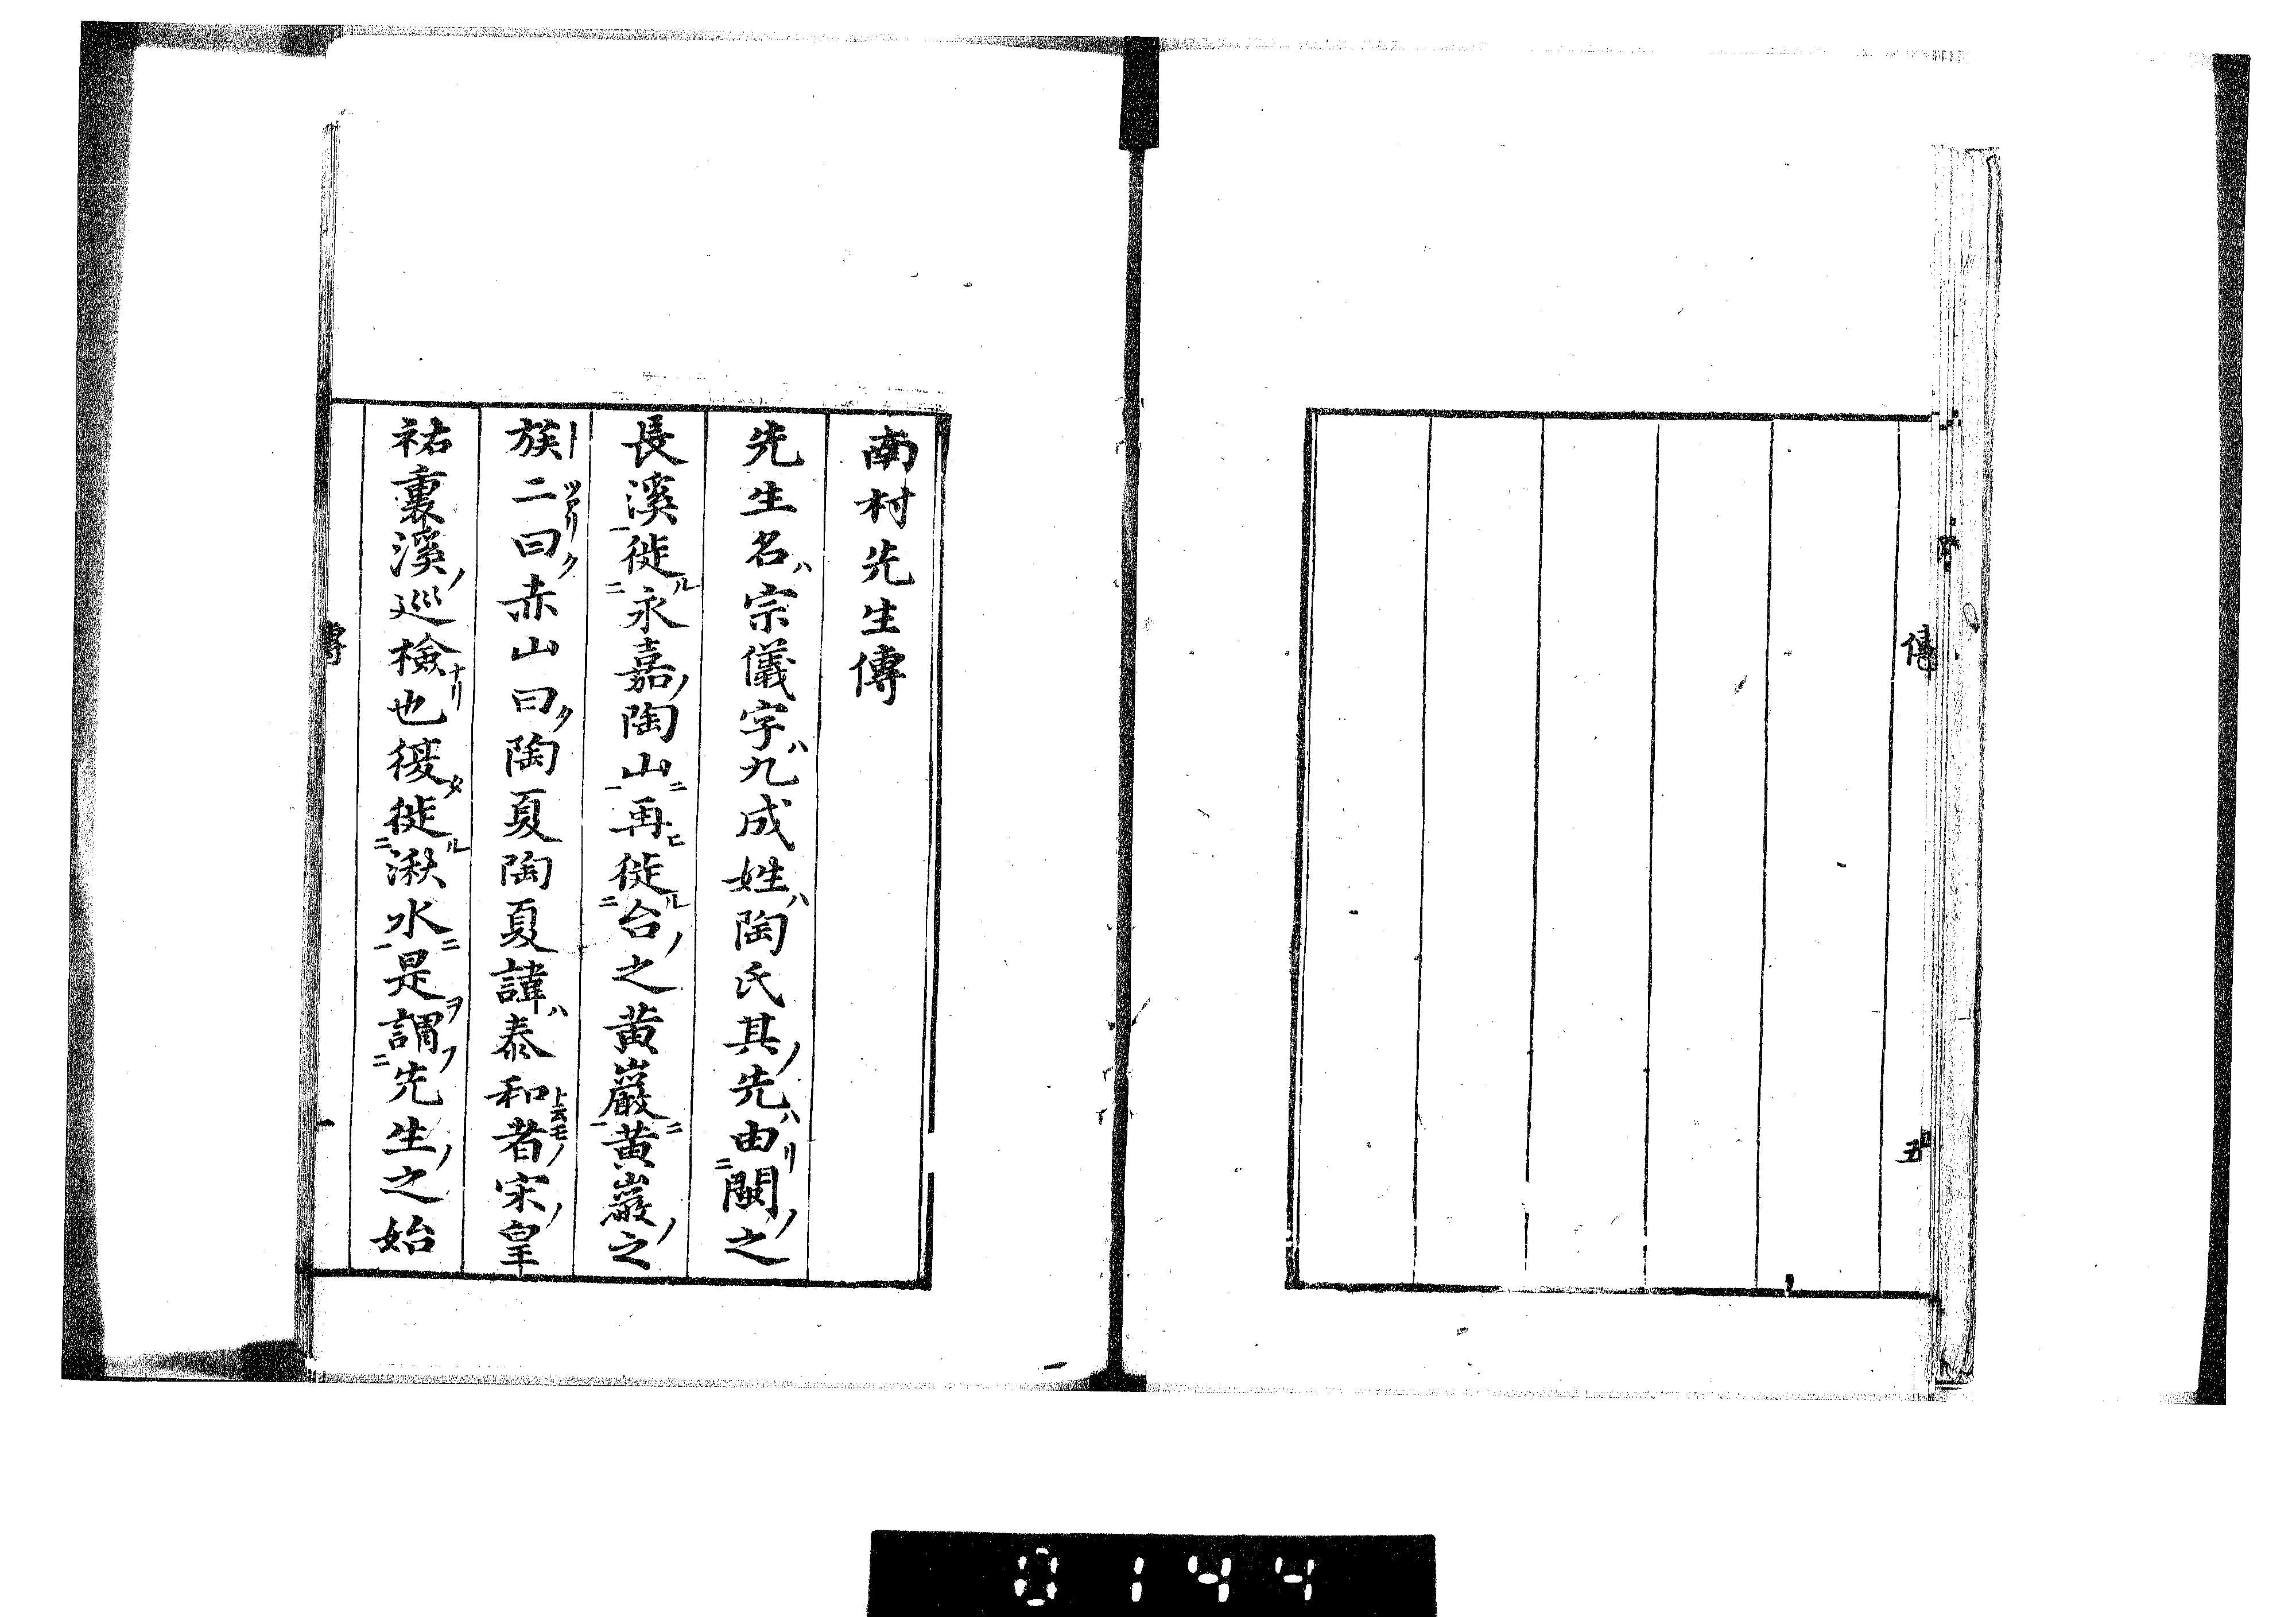 傳
五
南村先生傳
先生名ハ宗儀字ハ九成姓ハ陶氏其ノ先ハ由リ二閩ノ之
長溪一徙ル二永嘉ノ陶山ニ一再ヒ徙ル二台ノ之黄巖ニ一黄巖ノ之
族二ツアリ曰ク赤山曰ク陶夏陶夏諱ハ泰和ト云モノ者宋ノ皇
祐裏溪ノ巡檢ナリ也後タ徙ル二湫水ニ一是ヲ謂フ二先生ノ之始
傳
一
0144